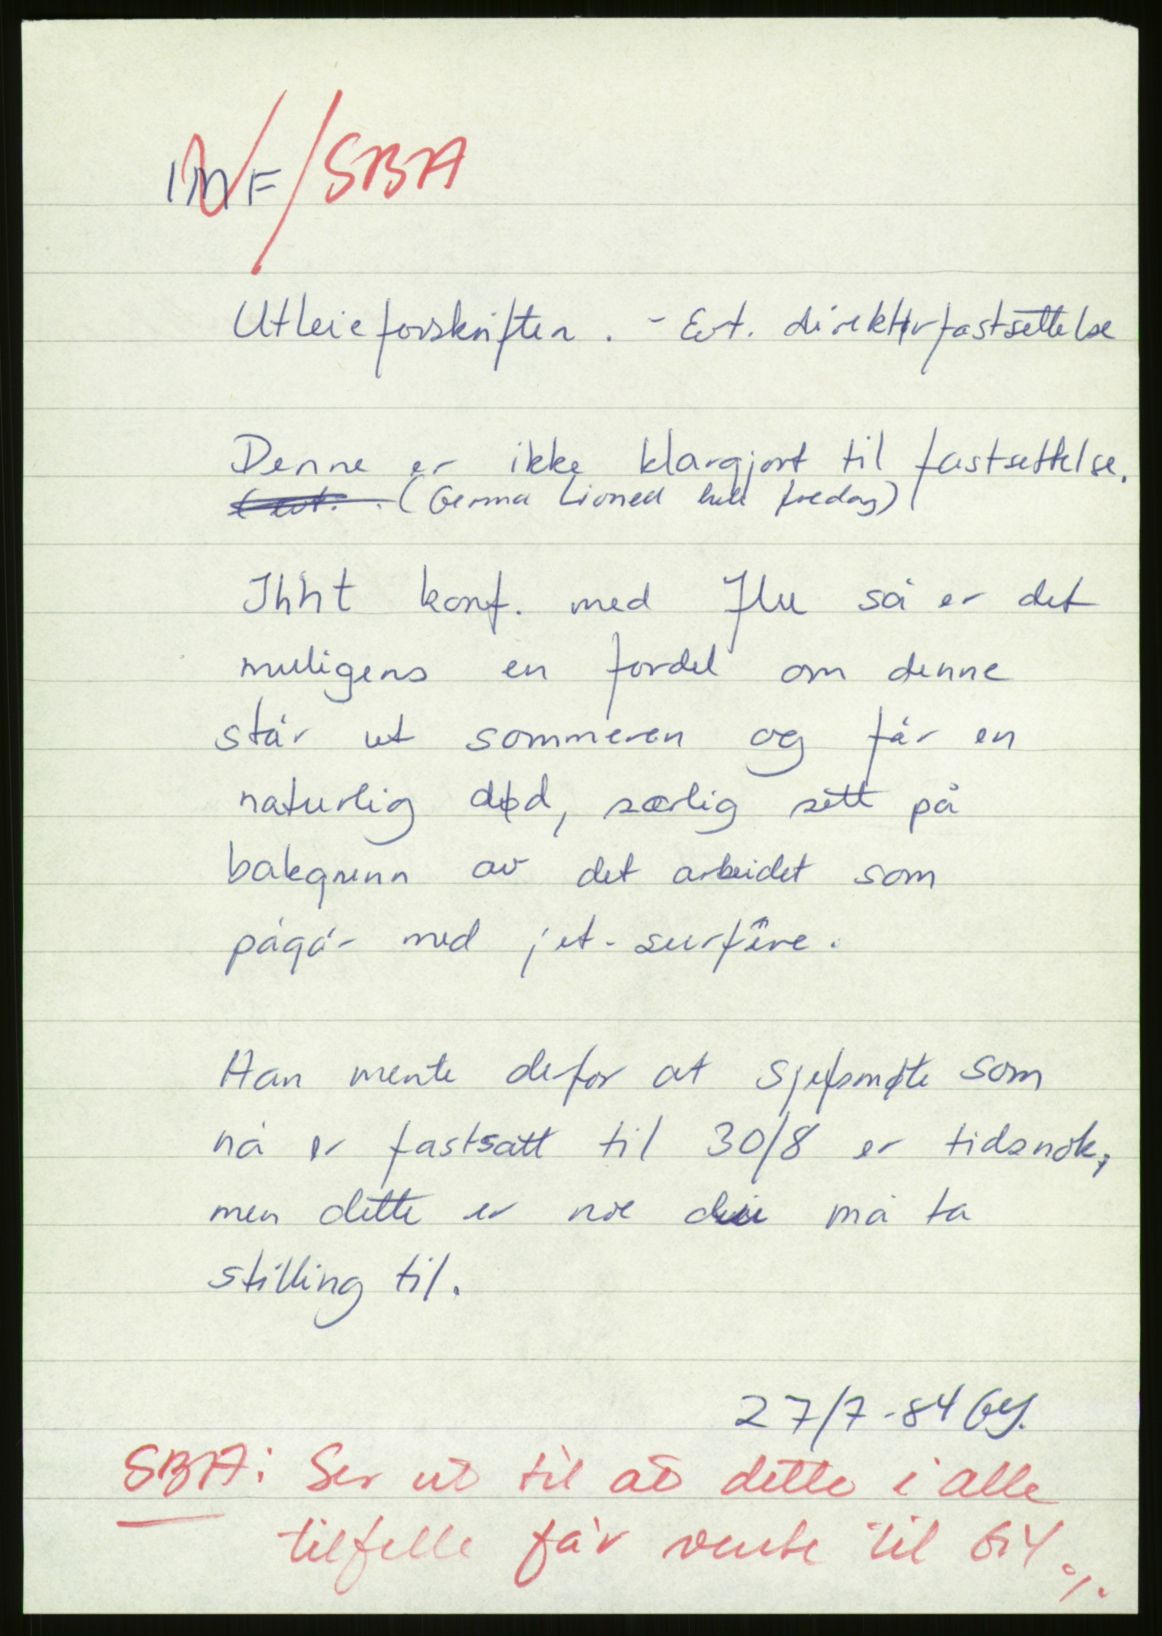 IMF/SBA
Utleieforskriften. - Evt. direktørfastsettelse
Denne er ikke klargjort til fastsettelse.
(Gerina Lioned fredag)
Ihht konf. med JHu så er det
muligens en fordel om denne
står ut sommeren og får en
naturlig død, særlig sett på
bakgrunn av det arbeidet som
pågår med jet-surfere.
Han mente defor at sjefsmøte som
nå er fastsatt til 30/8 er tidsnok,
men dette er noe må ta
stilling til.
27/7-84 GY.
SBA: Ser ut til at dette i alle
tilfelle får vente til GY ./.